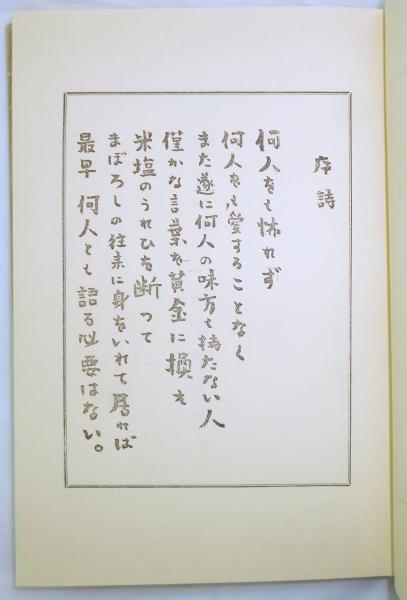 序詩
何人をも怖れず
何人をも愛することなく
また遂に何人の味方も持たない人
僅かな言葉を黄金に換へ
米塩のうれひを断つて
まぼろしの往来に身をいれて居れば
最早 何人とも語る必要はない。